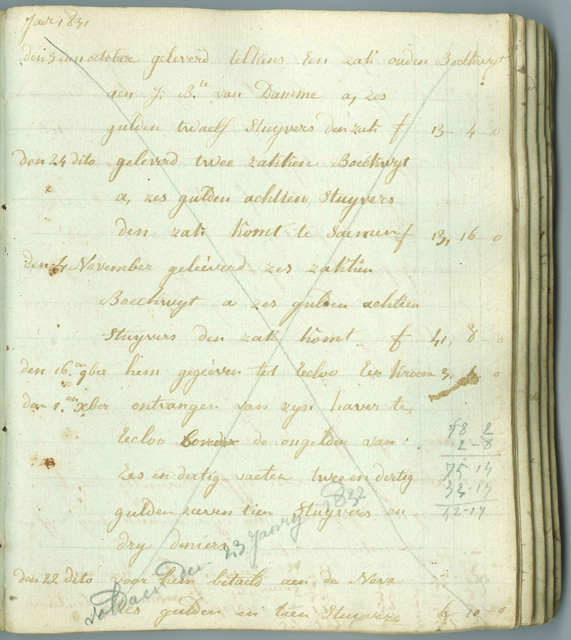 Jaer 1831
den 3 in october geleverd telkens Een zak ouden Boeckwyt
aen J: B.te van Damme a, zes
gulden twaelf stuyvers den zak f 13 - 4 - 0
den 24 dito geleverd twee zakken Boeckwyt
a, zes gulden achtien stuyvers
den zak komt te saemen f 13, 16 - 0
November geleeverd zes zakken
Boeckwyt a zes gulden achtien
stuyvers den zak komt f 41, 8 - 0
den 16.en 9ber hem gegeeven tot Eecloo Een kroon
den 1.en Xber ontvangen van zyn haver te
Eecloo de ongelden van
zes en dertig vaeten twee en dertig
gulden zeeven tien stuyvers en
dry deniers
78 2
2 - 8
75 14
32 - 17
42 - 17
voldaen den 23 January 1832
den 22 dito voor hem betaelt aen de Neve
zes gulden en tien stuyvers 6 10 - 0